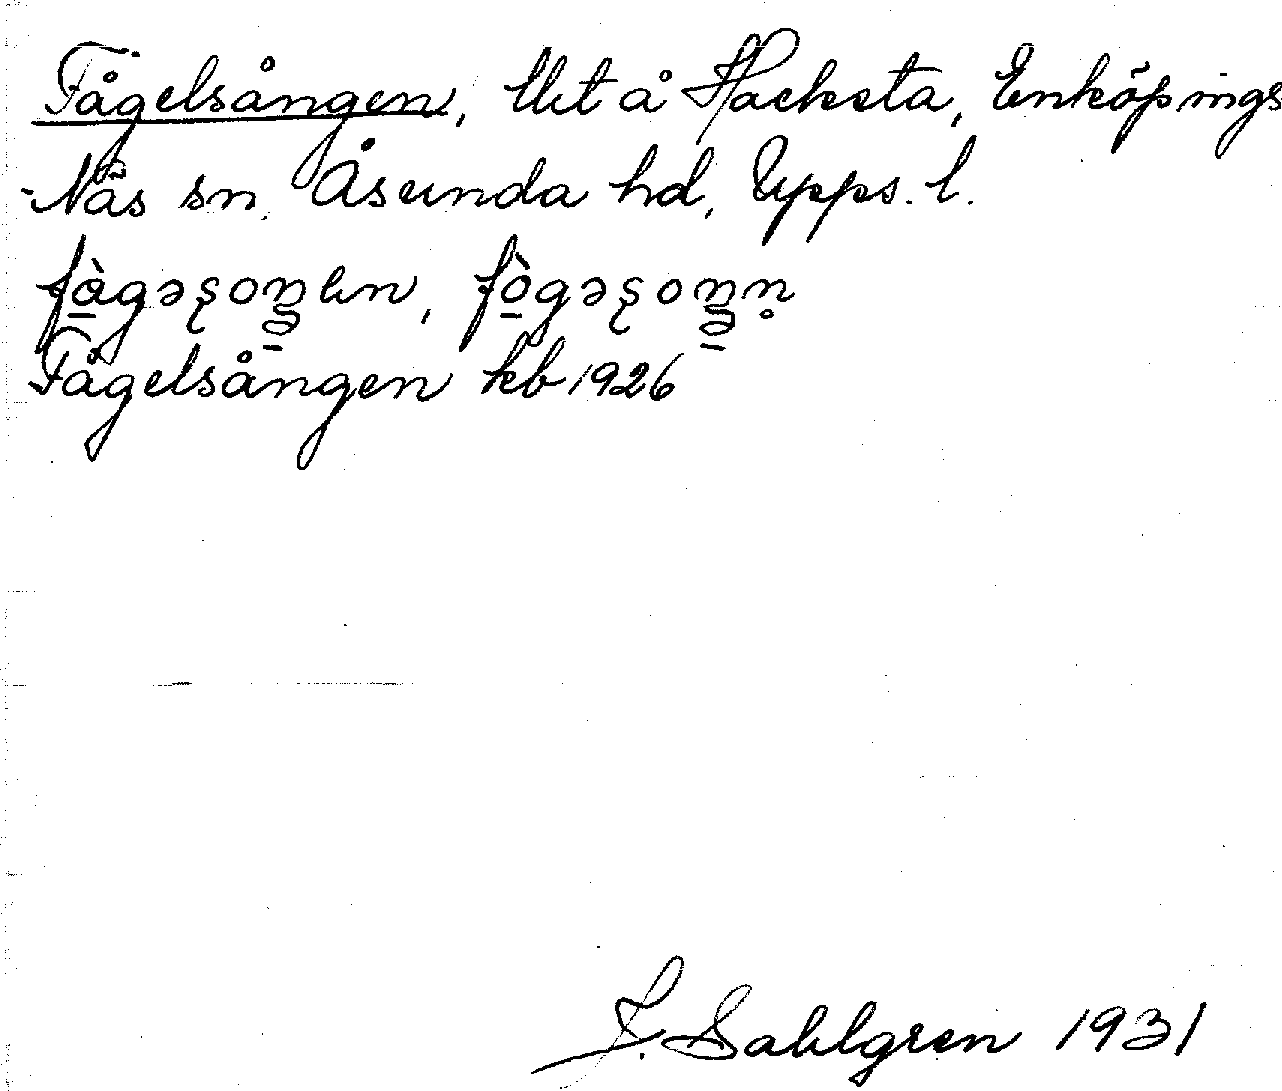 Fågelsången, lht å Hacksta, Enköpings
-Näs sn, Åsunda hd, Upps. l.
Fågelsången kb 1926
J. Sahlgren 1931